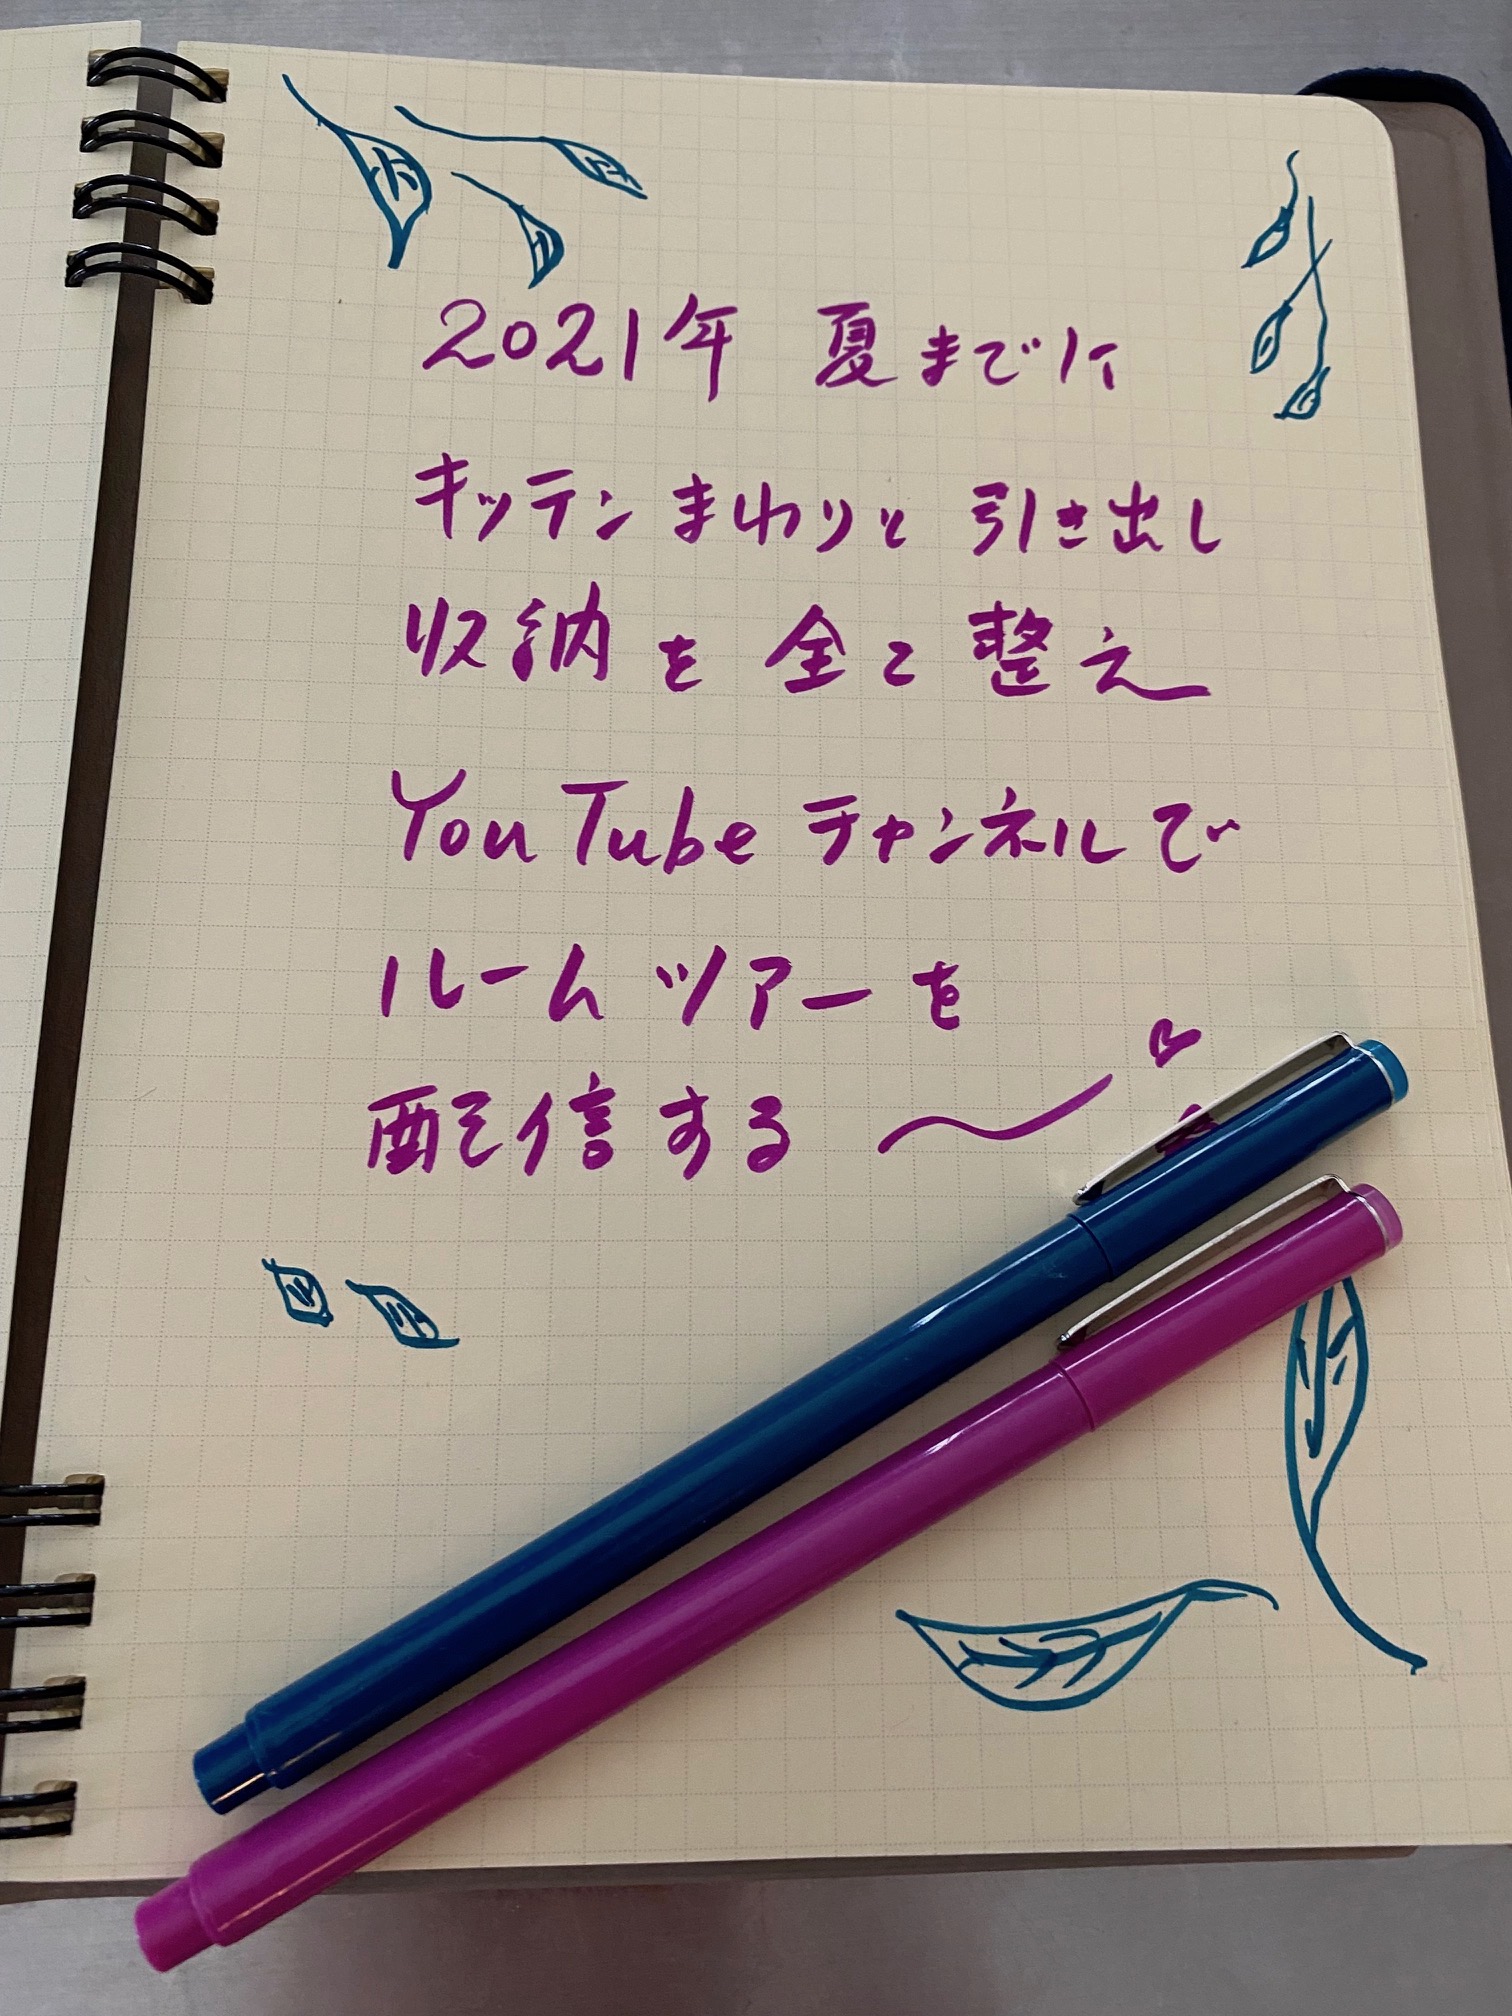 2021年 夏までに
キッチンまわりと 引き出し
収納を全て整え
YouTubeチャンネルで
ルームツアーを
配信する〜